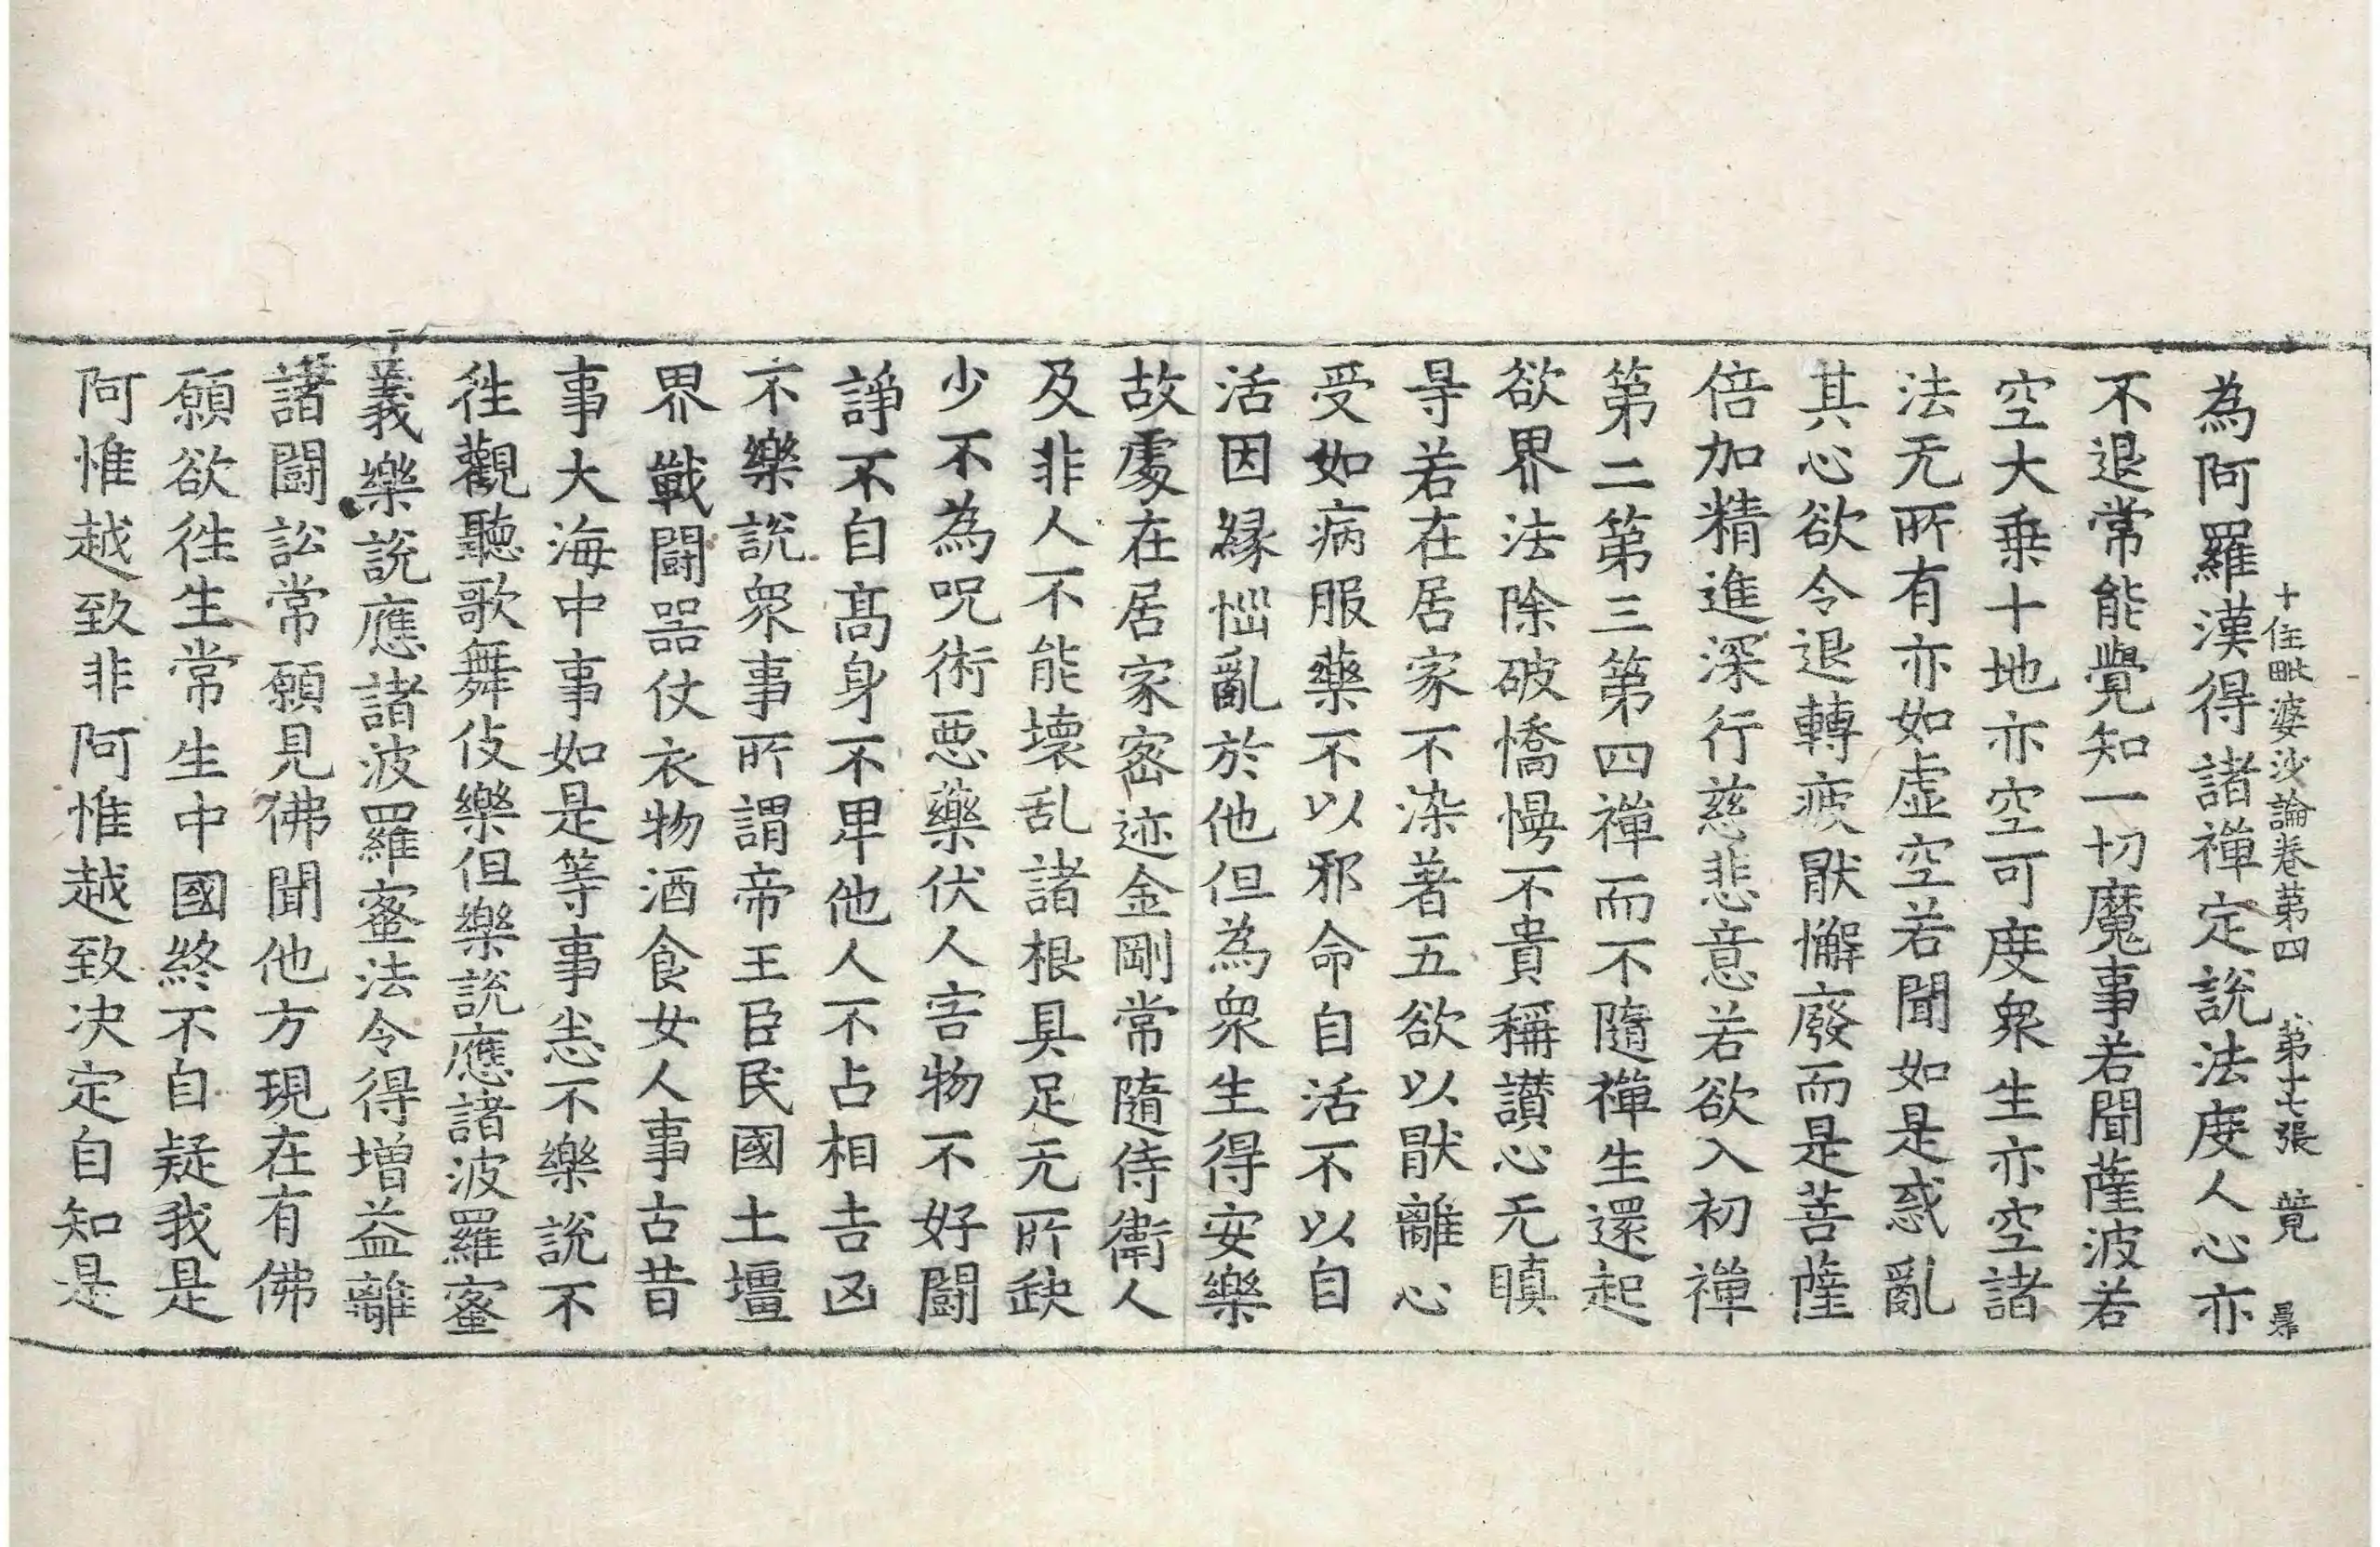 十住毗婆沙論卷第四 第十七張 竟
為阿羅漢得諸禪定說法度人心亦
不退常能覺知一切魔事若聞薩波若
空大乗十地亦空可度衆生亦空諸
法无所有亦如虛空若聞如是惑亂
其心欲令退轉疲猒懈廢而是菩薩
倍加精進深行慈悲意若欲入初禪
第二第三第四禪而不隨禪生還起
欲界法除破憍慢不貴稱讃心无瞋
㝵若在居家不染著五欲以猒離心
受如病服藥不以邪命自活不以自
活因縁惱亂於他但為衆生得安樂
故處在居家密迹金剛常隨侍衛人
及非人不能壞乱諸根具足无所缺
少不為呪術惡藥伏人害物不好鬪
諍不自髙身不卑他人不占相吉凶
不樂說衆事所謂帝王臣民國土壃
界戰鬪器仗衣物酒食女人事古昔
事大海中事如是等事悉不樂說不
徃觀聽歌舞伎樂但樂說應諸波羅蜜
義樂說應諸波羅蜜法令得增益離
諸鬪訟常願見佛聞他方現在有佛
願欲徃生常生中國終不自疑我是
阿惟越致非阿惟越致決定自知是